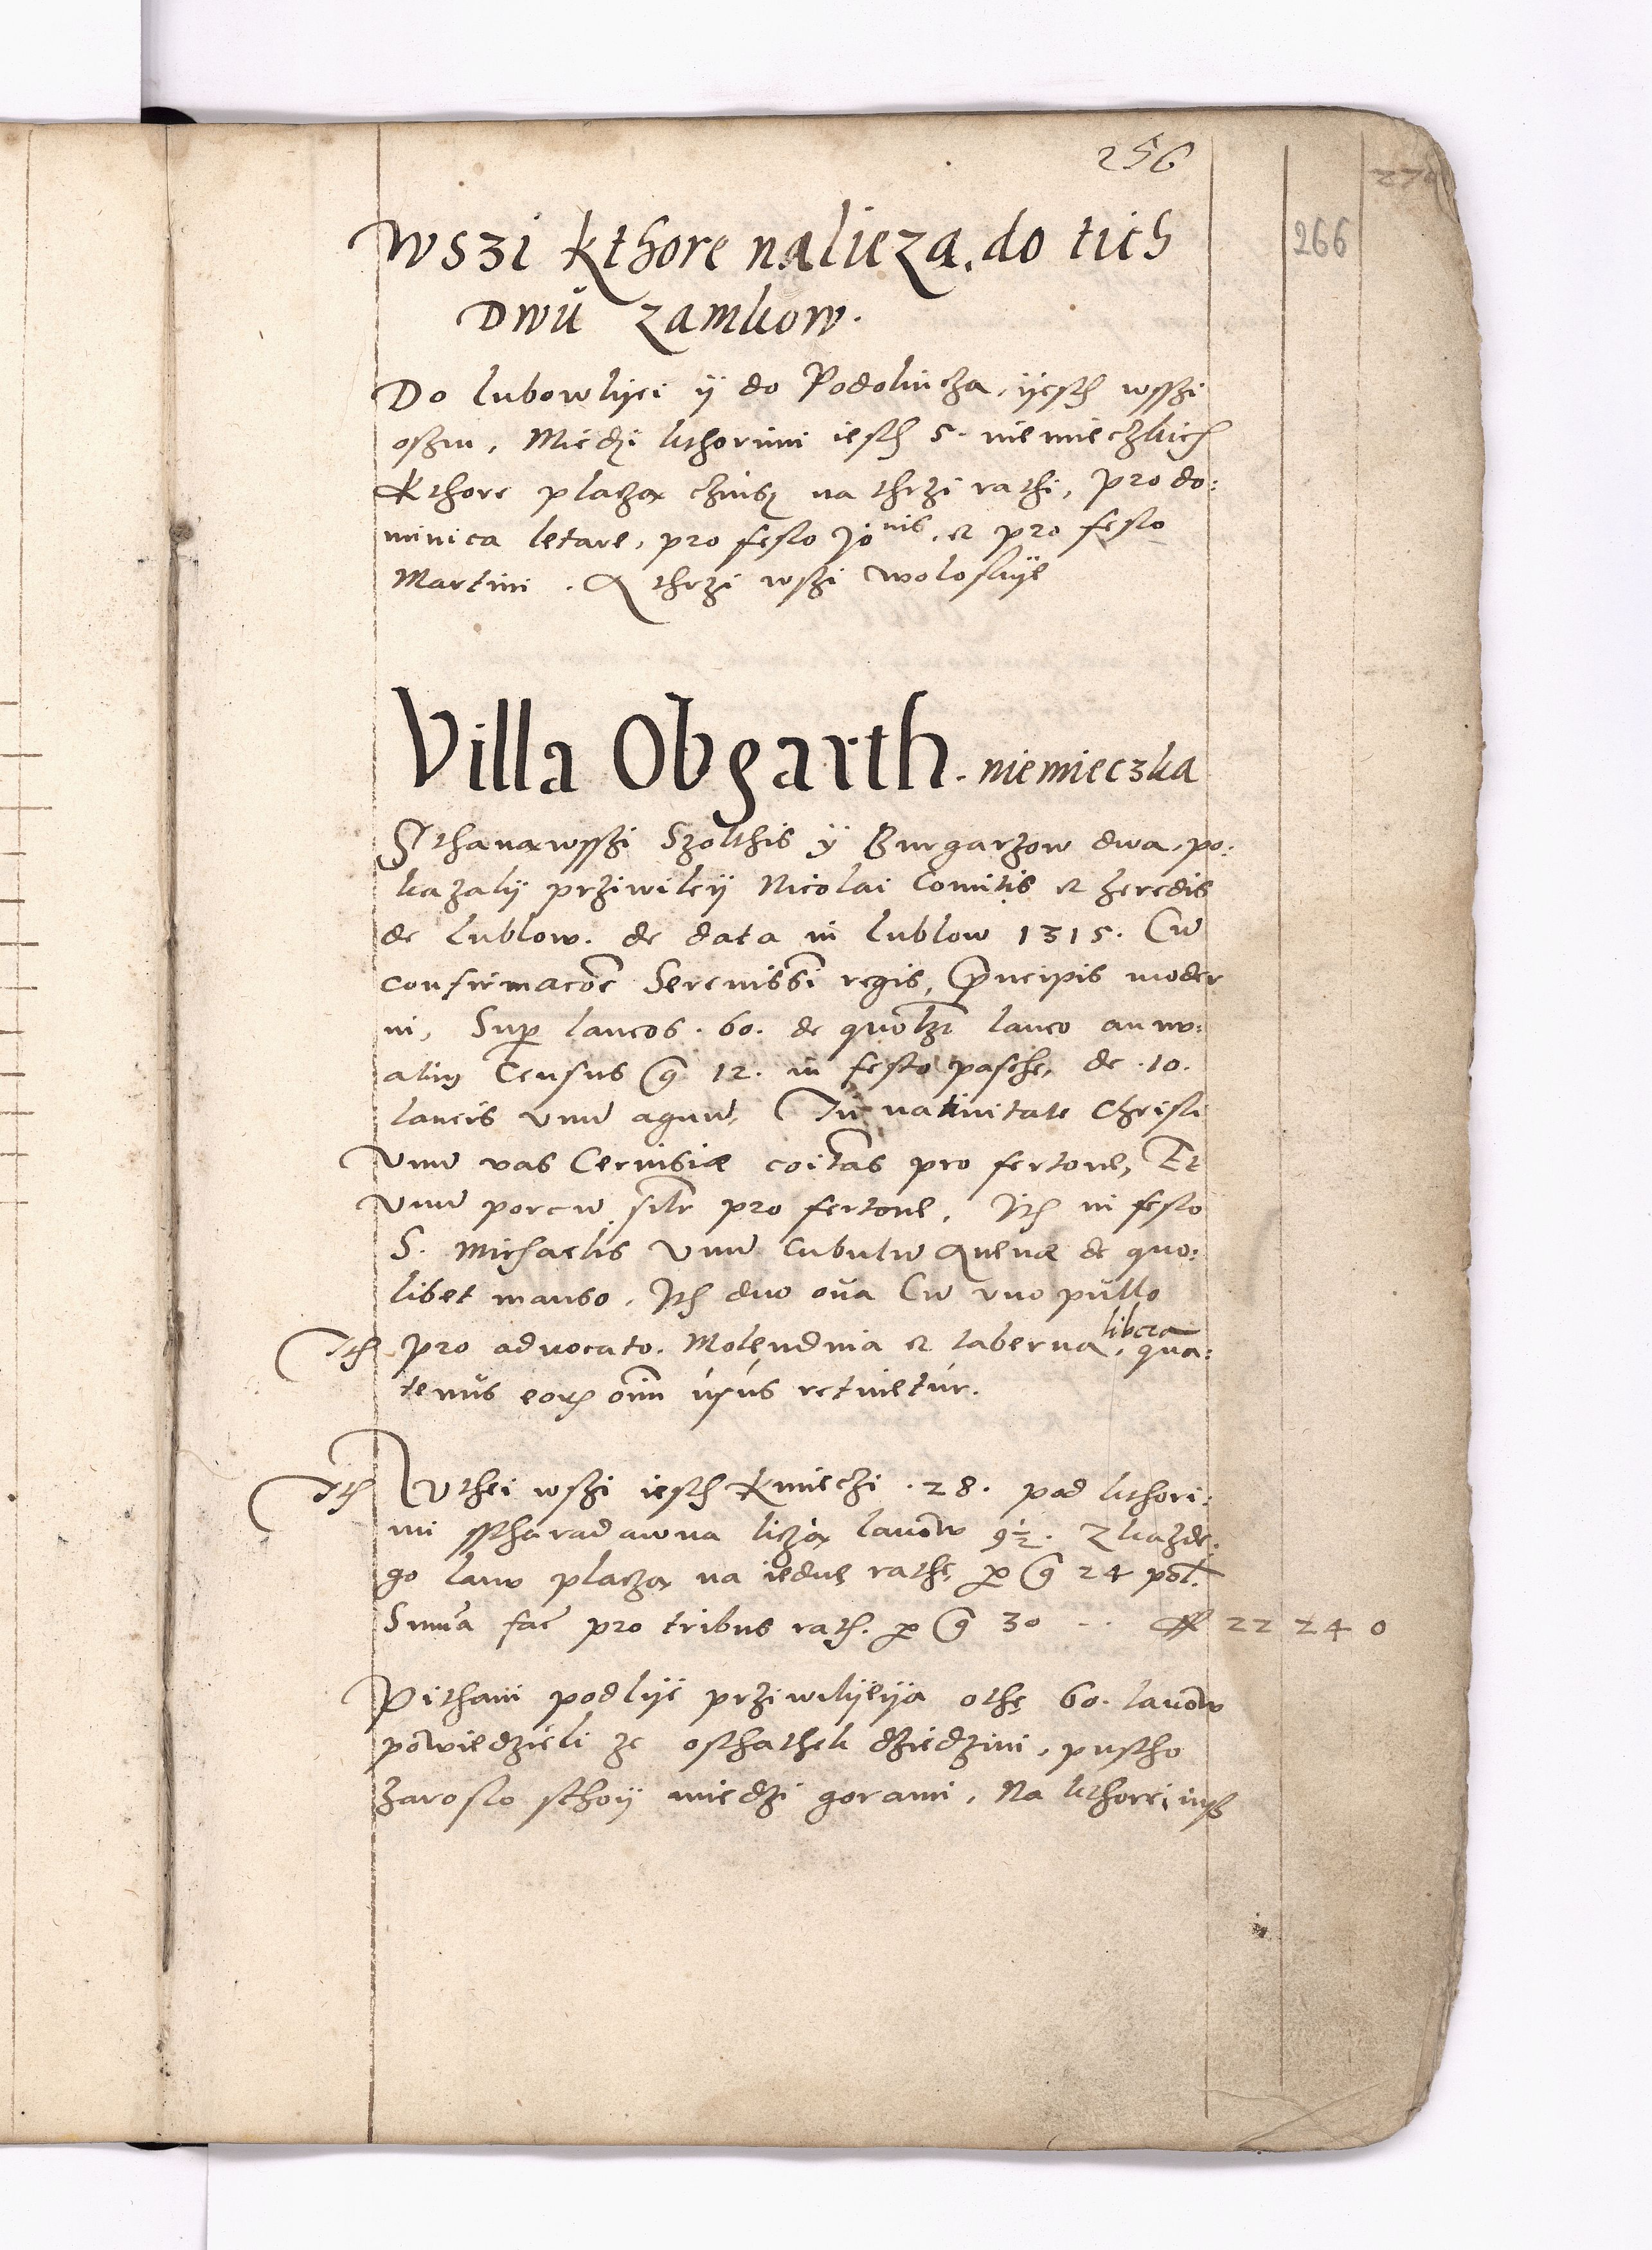 256
270
266
wszi kthore nalieza. do tich
Dwu zamkow.
Do lubowlyei ÿ do Podolincza, ÿesth wsszi
oszm, Miedzi kthorimi iesth 5. niemieczkich
Kthore placza czinsz na thrzi rathi, pro do:
minica letare, pro festo Jonis. et pro festo
Martini. A thrzi wszi woloskÿe
Villa Obgarth. niemieczka
Sthanawsszi Szolthis ÿ Burgarzow dwa, po:
kazalÿ prziwileÿ Nicolai Comitis et heredis
de lublow. de data in lublow 1315. Cu
confirmacoe Serenissi regis, Principis moder
ni, Sup laneos. 60. de quolzt laneo annu:
alis Census g 12. in festo pasche, de .10.
laneis vnu agnu, In nativitate Christi
Vnu vas Cervisiæ coitas pro fertone, Et
Vnu porcu silr pro fertone, Ith in festo
S. Michaelis Vnu Cubulu Auenæ de quo:
libet manso. Ith duo oua Cu vno pullo
Ith pro advocato. Molendina et taberna libera qua:
tenus eorz oim usus retinetur.
Ith Vthei wszi iesth Kmieczi .28. pod kthori:
mi sstharadawna licza lanow 9½. Z kazde:
go lanu placza na iedne rathe, per g 24 pol.
Suma fac pro tribus rath. per g 30 .. ff 22 24 0
Pithani podlye prziwilÿeÿa othe 60. lanow
powiedzieli ze osthathek dziedzini, pustho
zaroslo sthoÿ miedzi gorami, Na kthorei insz